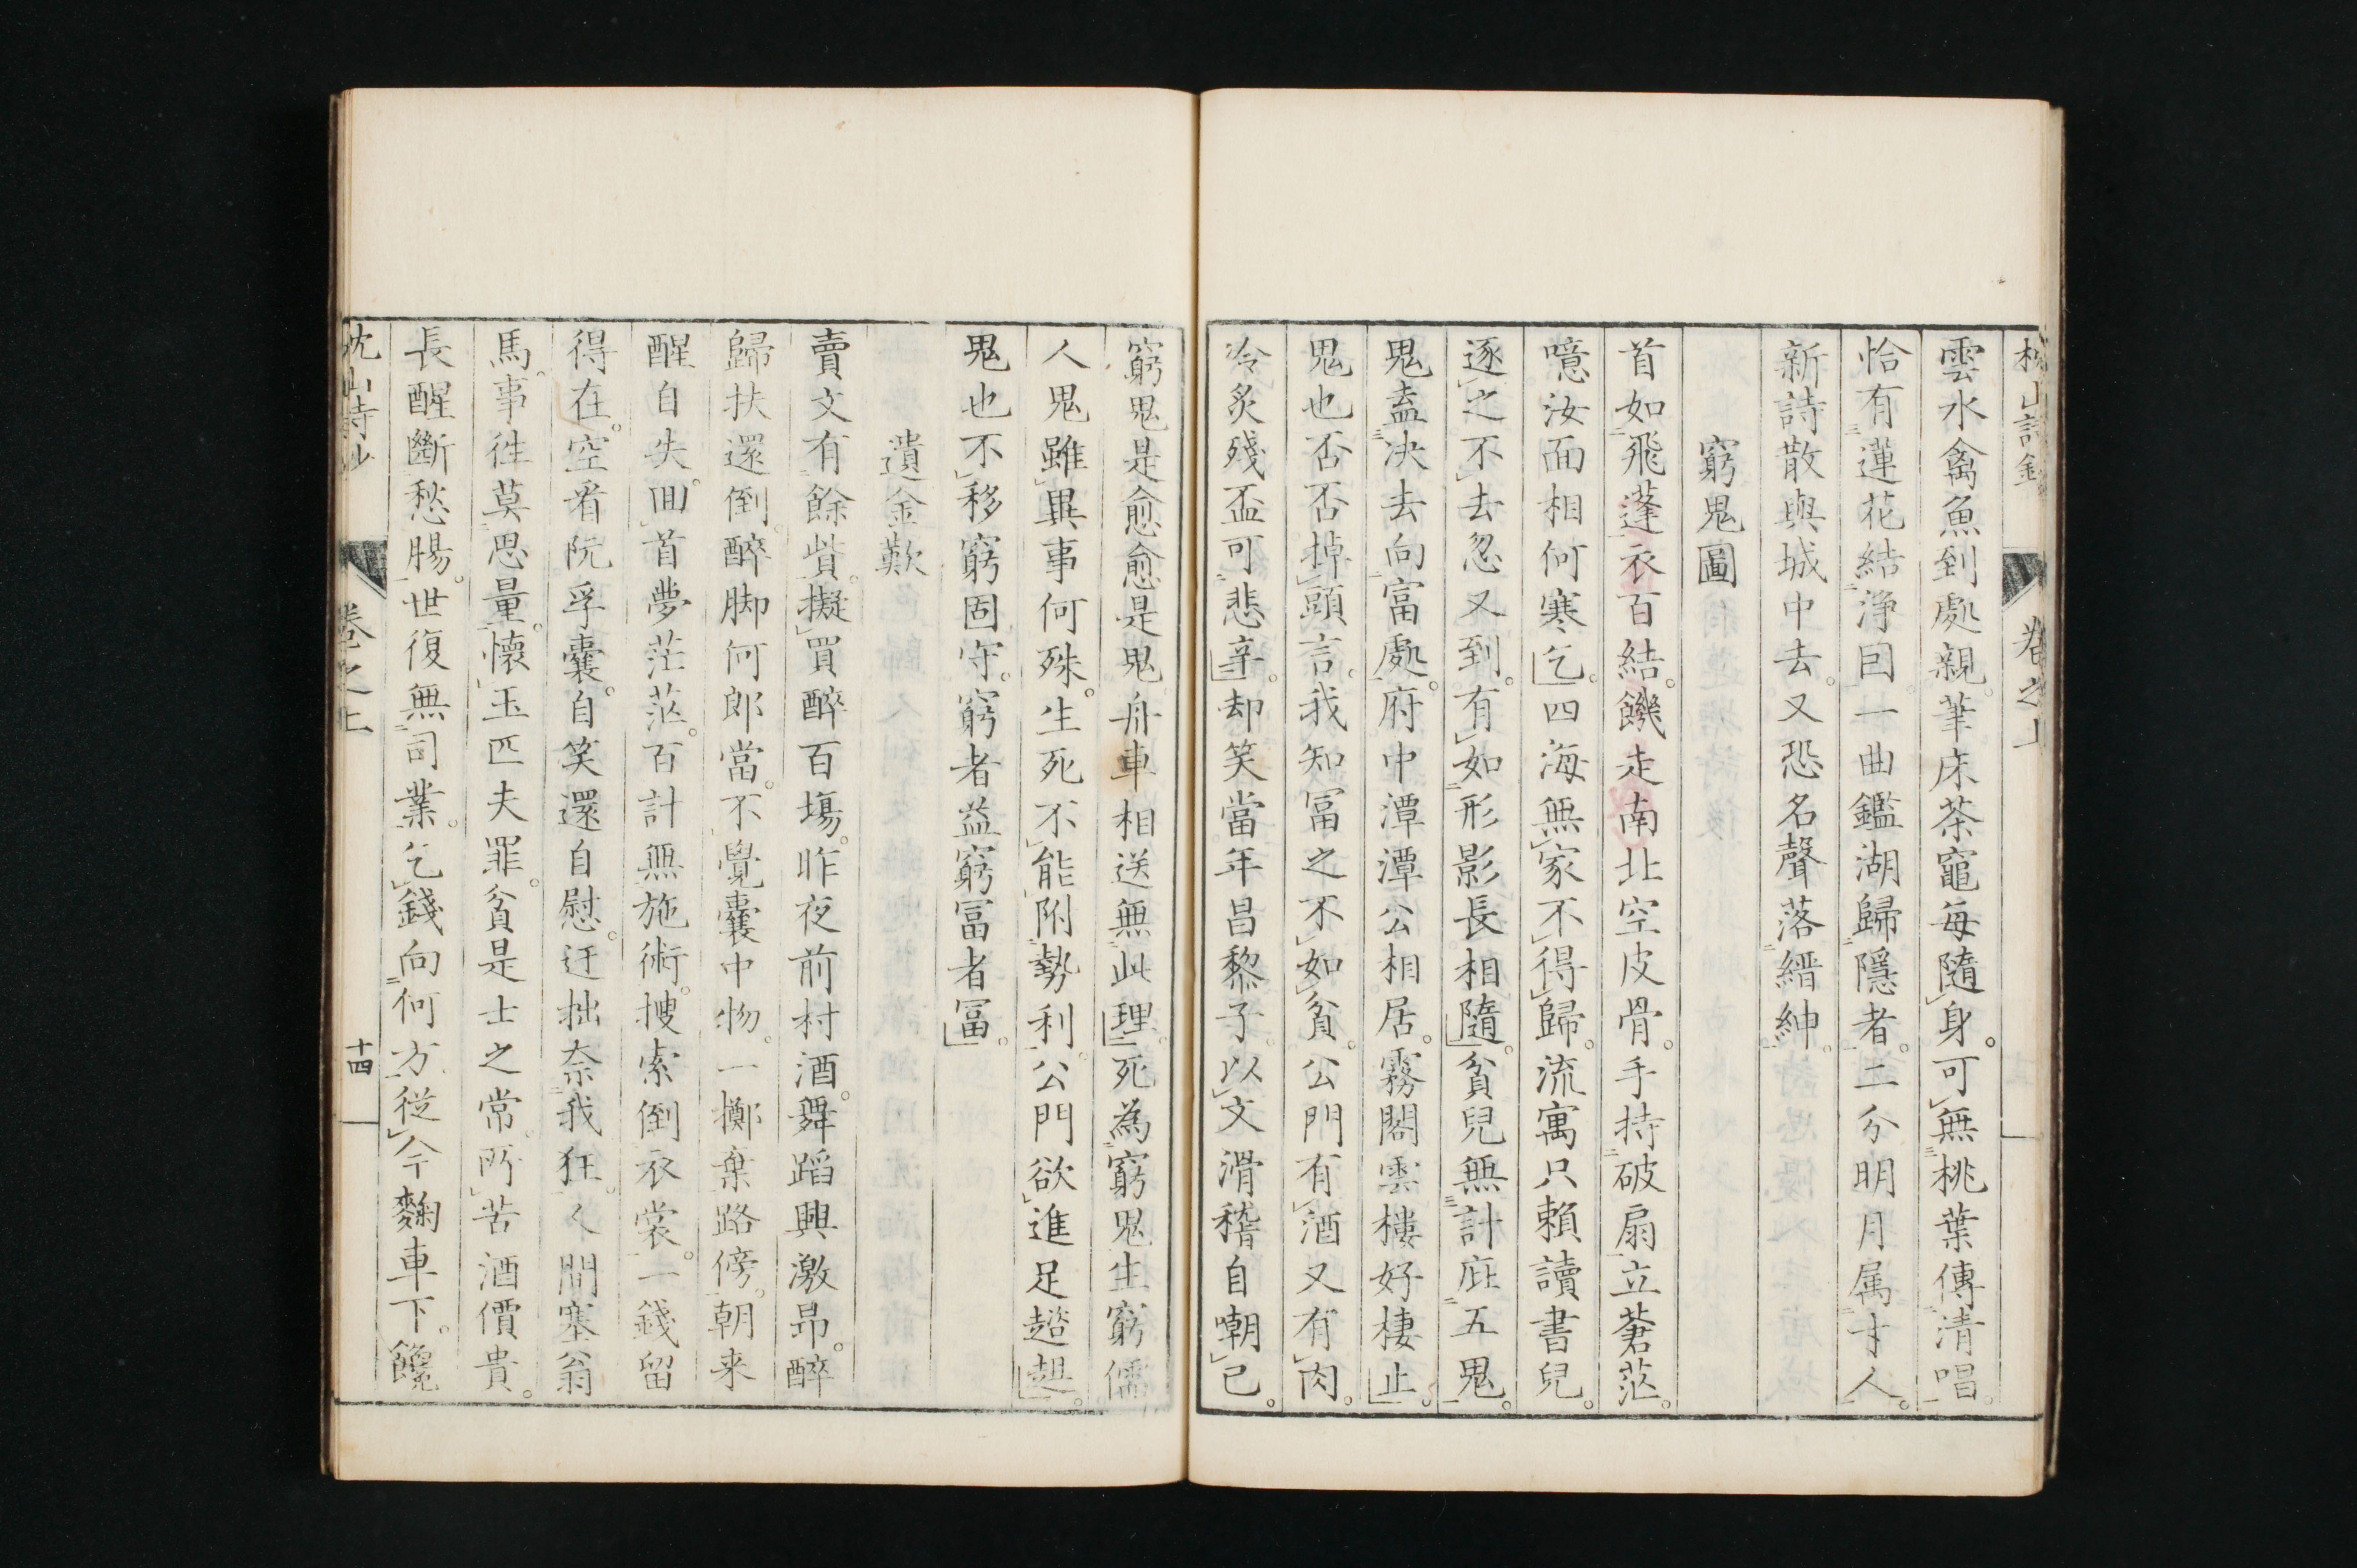 枕山詩鈔　卷之上
雲水禽魚到處親。筆床茶竈每隨身。可無桃葉傳清唱。
恰有蓮花結淨因。一曲鑑湖歸隱者。二分明月属才人。
新詩散與城中去。又恐名聲落縉紳。
窮鬼圖
首如飛蓬衣百結。饑走南北空皮骨。手持破扇立蒼茫。
噫汝面相何寒乞。四海無家不得歸。流寓只賴讀書兒。
逐之不去忽又到。有如形影長相隨。貧兒無計庇五鬼。
鬼盍决去向富處。府中潭潭公相居。霧閣雲樓好棲止。
鬼也否否掉頭言。我知冨之不如貧。公門有酒又有肉。
冷炙殘盃可悲辛。却笑當年昌黎子。以文滑稽自嘲已。
窮鬼是愈愈是鬼。舟車相送無此理。死為窮鬼生窮儒
人鬼雖異事何殊。生死不能附勢利。公門欲進足趑趄。
鬼也不移窮固守。窮者益窮冨者冨。
遺金歎
賣文有餘貲。擬買醉百場。昨夜前村酒。舞蹈興激昂。醉
歸扶還倒。醉脚何郎當。不覺囊中物。一擲棄路傍。朝来
醒自失。囬首夢茫茫。百計無施術。搜索倒衣裳。一錢留
得在。空看阮孚囊。自笑還自慰。迂拙奈我狂。人間塞翁
馬。事徃莫思量。懷玉匹夫罪。貧是士之常。所苦酒價貴。
長醒斷愁腸。世復無司業。乞錢向何方。從今麴車下。饞
枕山詩鈔　卷之上　十四